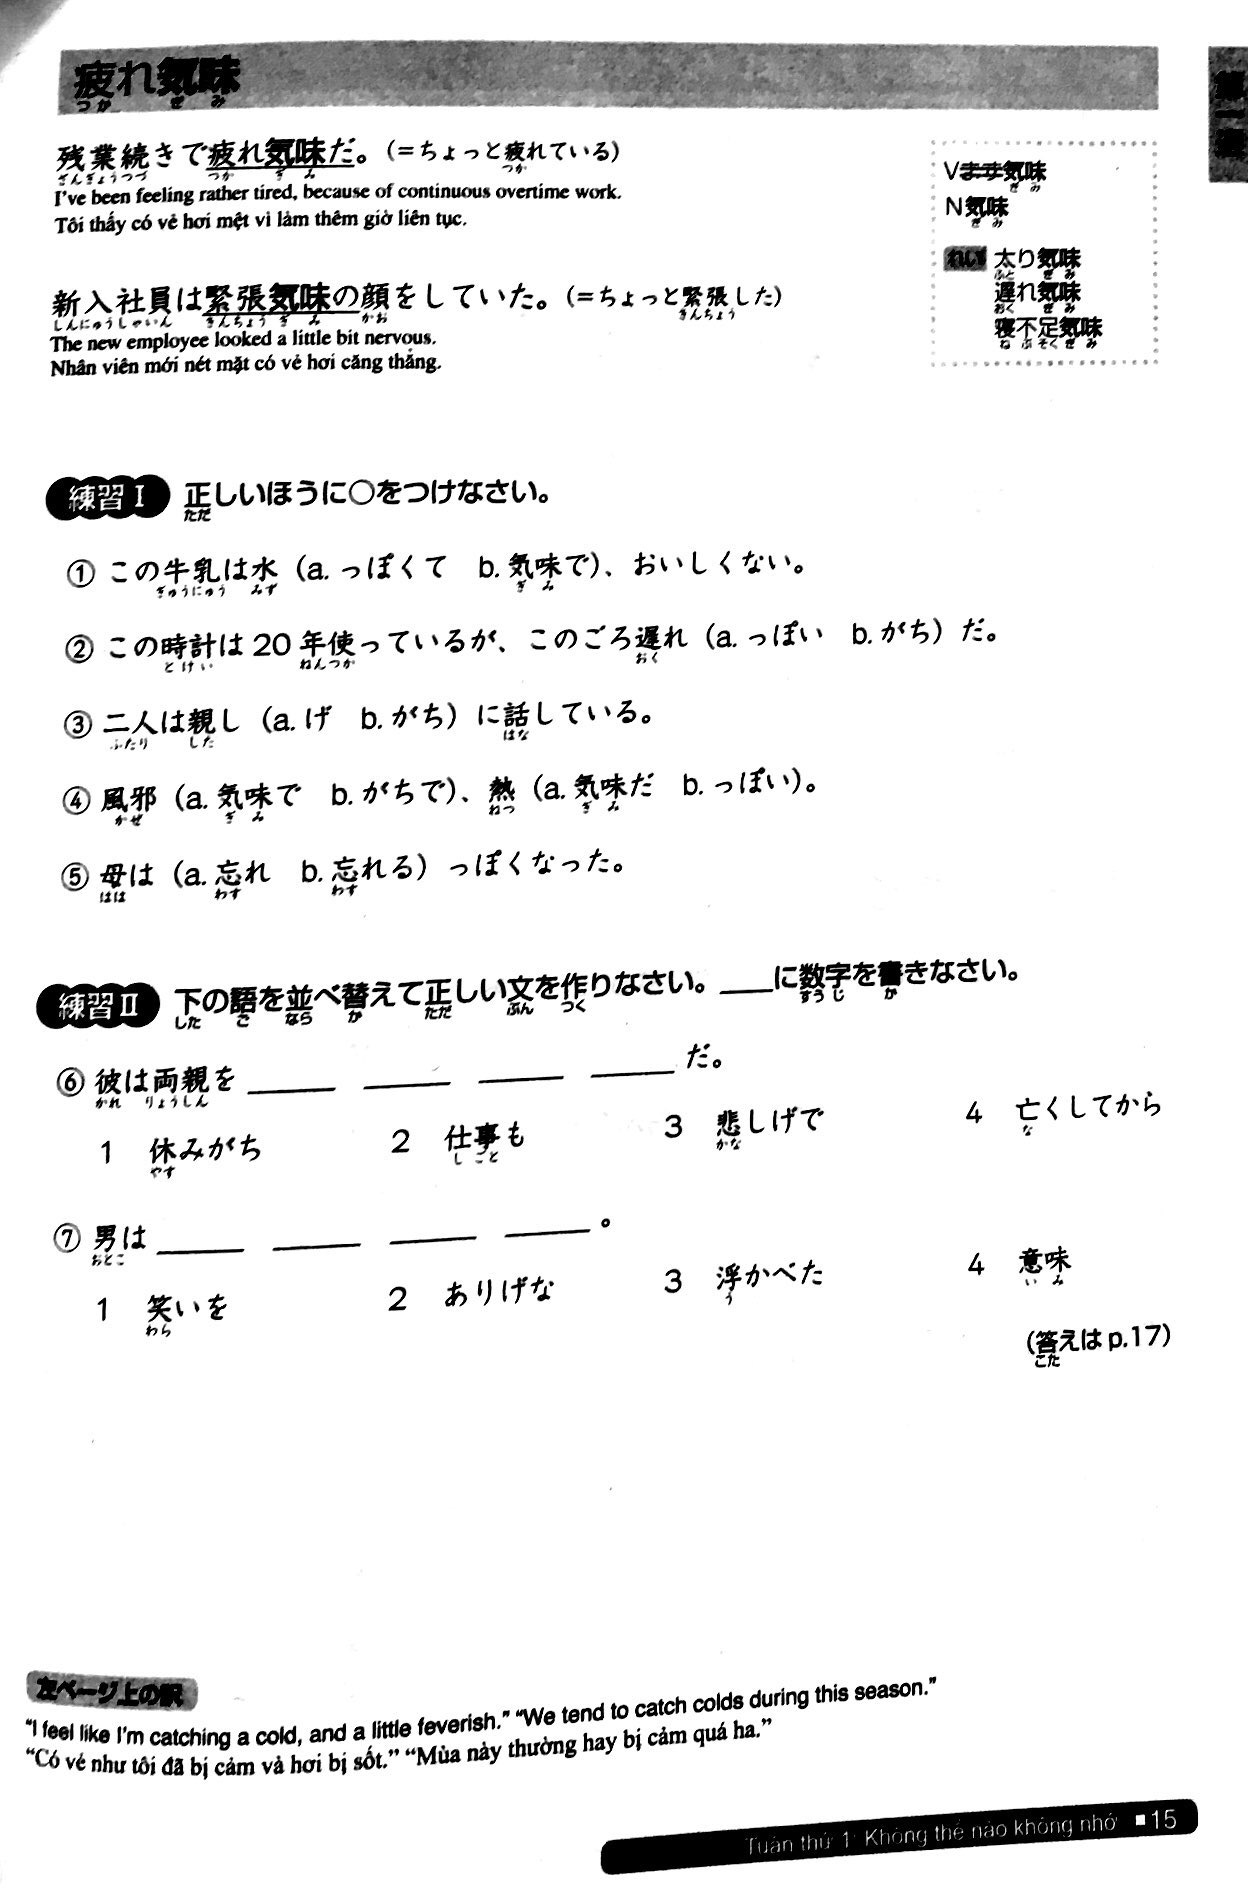 疲れ気味
つか ぎ み
残業続きで疲れ気味だ。(=ちょっと疲れている)
ざんぎょうつづ つか ぎ み つか
I've been feeling rather tired, because of continuous overtime work.
Tôi thấy có vẻ hơi mệt vì làm thêm giờ liên tục.
新入社員は緊張気味の顔をしていた。(=ちょっと緊張した)
しんにゅうしゃいん きんちょう ぎ み かお きんちょう
The new employee looked a little bit nervous.
Nhân viên mới nét mặt có vẻ hơi căng thẳng.
Vます気味
ぎ み
N気味
ぎ み
れい 太り気味
ふと ぎ み
遅れ気味
おく ぎ み
寝不足気味
ね ぶ そく ぎ み
練習Ⅰ 正しいほうに○をつけなさい。
ただ
① この牛乳は水(a. っぽくて b. 気味で)、おいしくない。
ぎゅうにゅう みず ぎ み
② この時計は20年使っているが、このごろ遅れ(a. っぽい b. がち)だ。
と けい ねんつか おく
③ 二人は親し(a. げ b. がち)に話している。
ふたり した はな
④ 風邪(a. 気味で b. がちで)、熱(a. 気味だ b. っぽい)。
かぜ ぎ み ねつ ぎ み
⑤ 母は(a. 忘れ b. 忘れる)っぽくなった。
はは わす わす
練習Ⅱ 下の語を並べ替えて正しい文を作りなさい。___に数字を書きなさい。
した ご なら か ただ ぶん つく すう じ か
⑥ 彼は両親を ____ ____ ____ ____ だ。
かれ りょうしん
1 休みがち 2 仕事も 3 悲しげで 4 亡くしてから
やす し ごと かな な
⑦ 男は ____ ____ ____ ____ 。
おとこ
1 笑いを 2 ありげな 3 浮かべた 4 意味
わら う い み
(答えはp.17)
こた
左ページ上の訳
“I feel like I'm catching a cold, and a little feverish.” “We tend to catch colds during this season.”
“Có vẻ như tôi đã bị cảm và hơi bị sốt.” “Mùa này thường hay bị cảm quá ha.”
Tuần thứ 1: Không thể nào không nhớ ■15